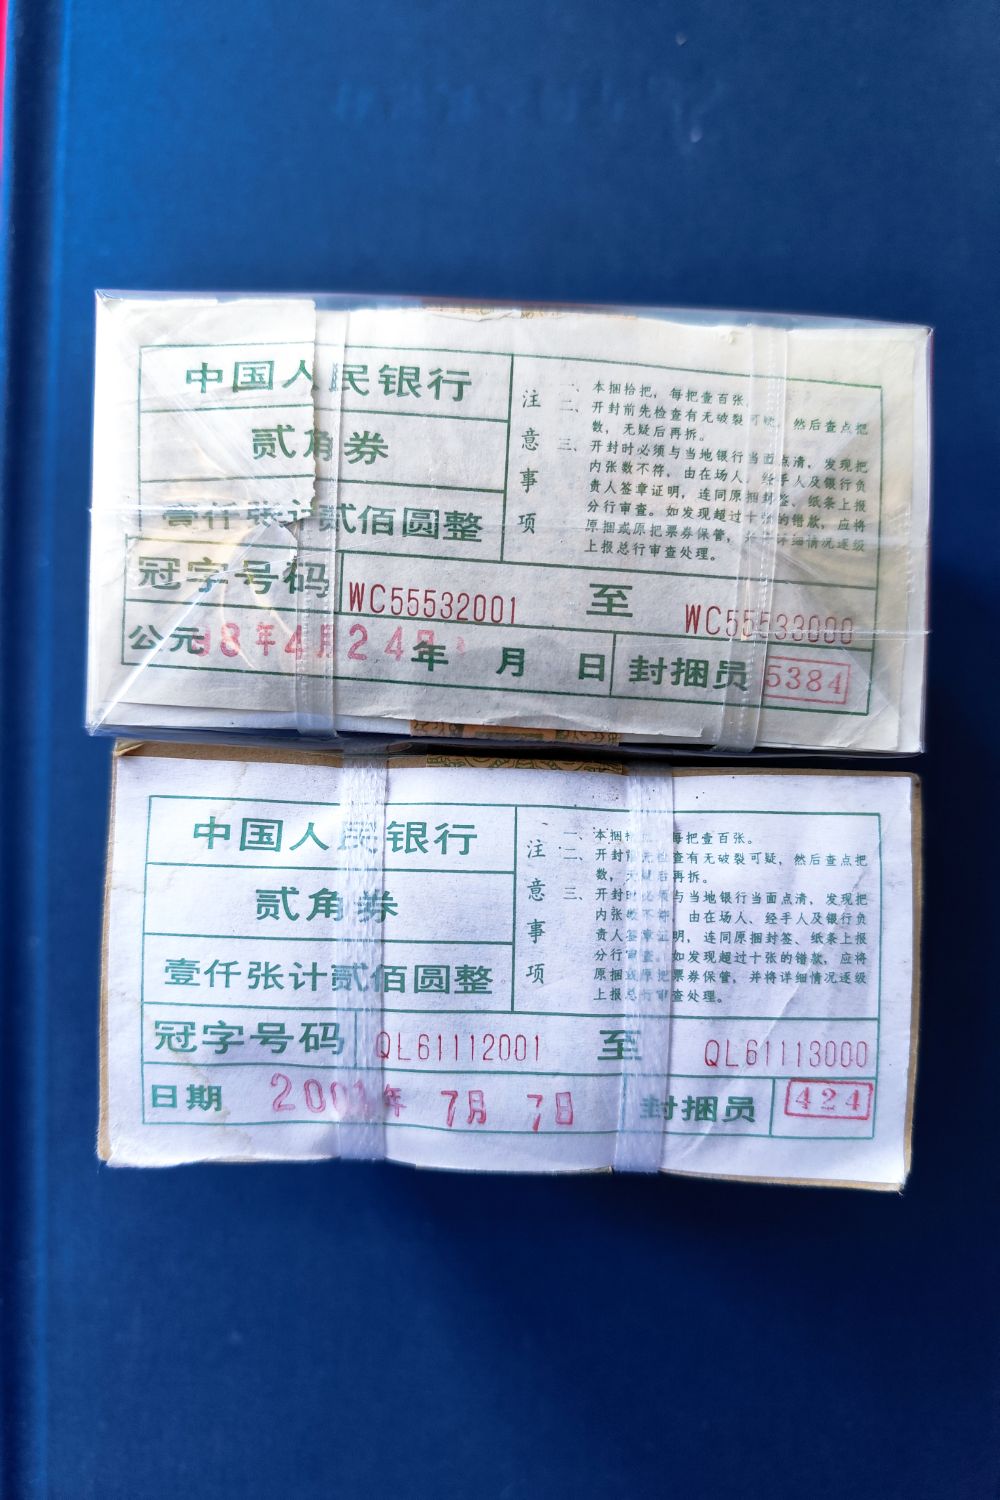 中国人民银行
贰角券
壹仟张计贰佰圆整
注意事项
一、本捆拾把，每把壹百张。
二、开封前先检查有无破裂可疑，然后查点把
数，无疑后再拆。
三、开封时必须与当地银行当面点清，发现把
内张数不符，由在场人、经手人及银行负
责人签章证明，连同原捆封签、纸条上报
分行审查。如发现超过十张的错款，应将
原捆或原把票券保管，并将详细情况逐级
上报总行审查处理。
冠字号码 WC55532001 至 WC55533000
公元 98年4月24日 年 月 日 封捆员 5384
中国人民银行
贰角券
壹仟张计贰佰圆整
注意事项
一、本捆拾把，每把壹百张。
二、开封前先检查有无破裂可疑，然后查点把
数，无疑后再拆。
三、开封时必须与当地银行当面点清，发现把
内张数不符，由在场人、经手人及银行负
责人签章证明，连同原捆封签、纸条上报
分行审查。如发现超过十张的错款，应将
原捆或原把票券保管，并将详细情况逐级
上报总行审查处理。
冠字号码 QL61112001 至 QL61113000
日期 2001年 7月 7日 封捆员 424